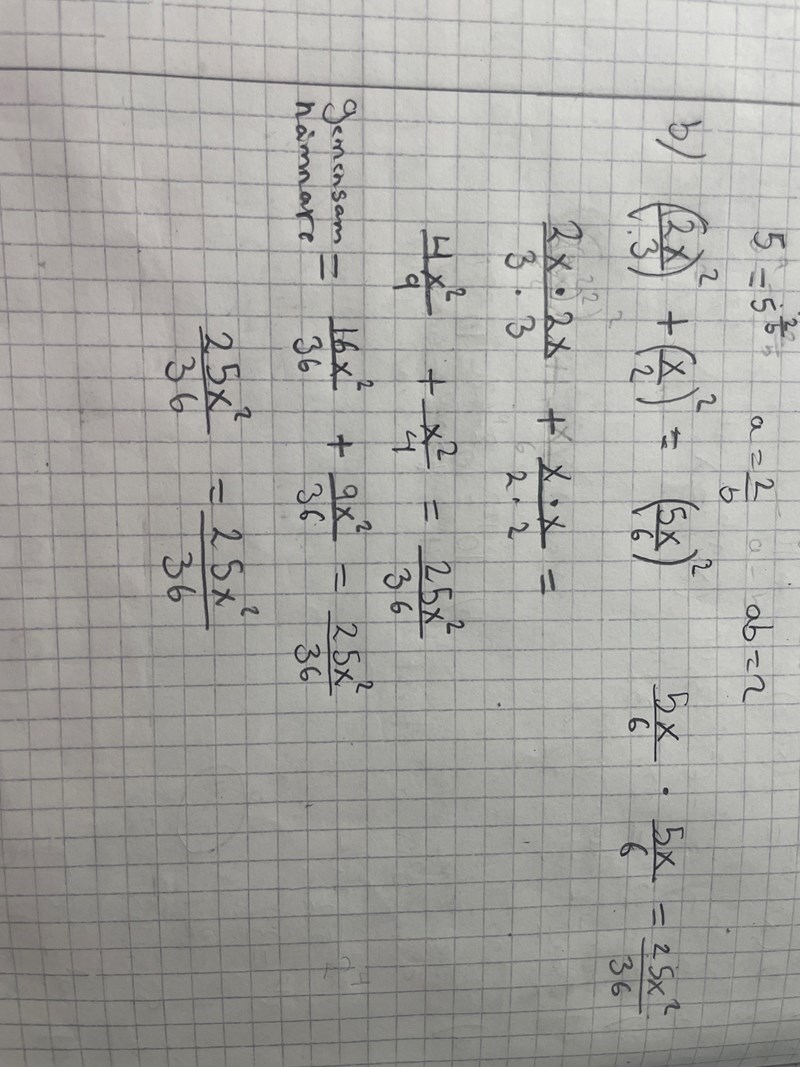 5 = 5 2/b a = 2/b ab = 2
b) (2x/3)² + (x/2)² = (5x/6)² 5x/6 · 5x/6 = 25x²/36
2x · 2x / 3 · 3 + x · x / 2 · 2 =
4x²/9 + x²/4 = 25x²/36
gemensam nämnare = 16x²/36 + 9x²/36 = 25x²/36
25x²/36 = 25x²/36